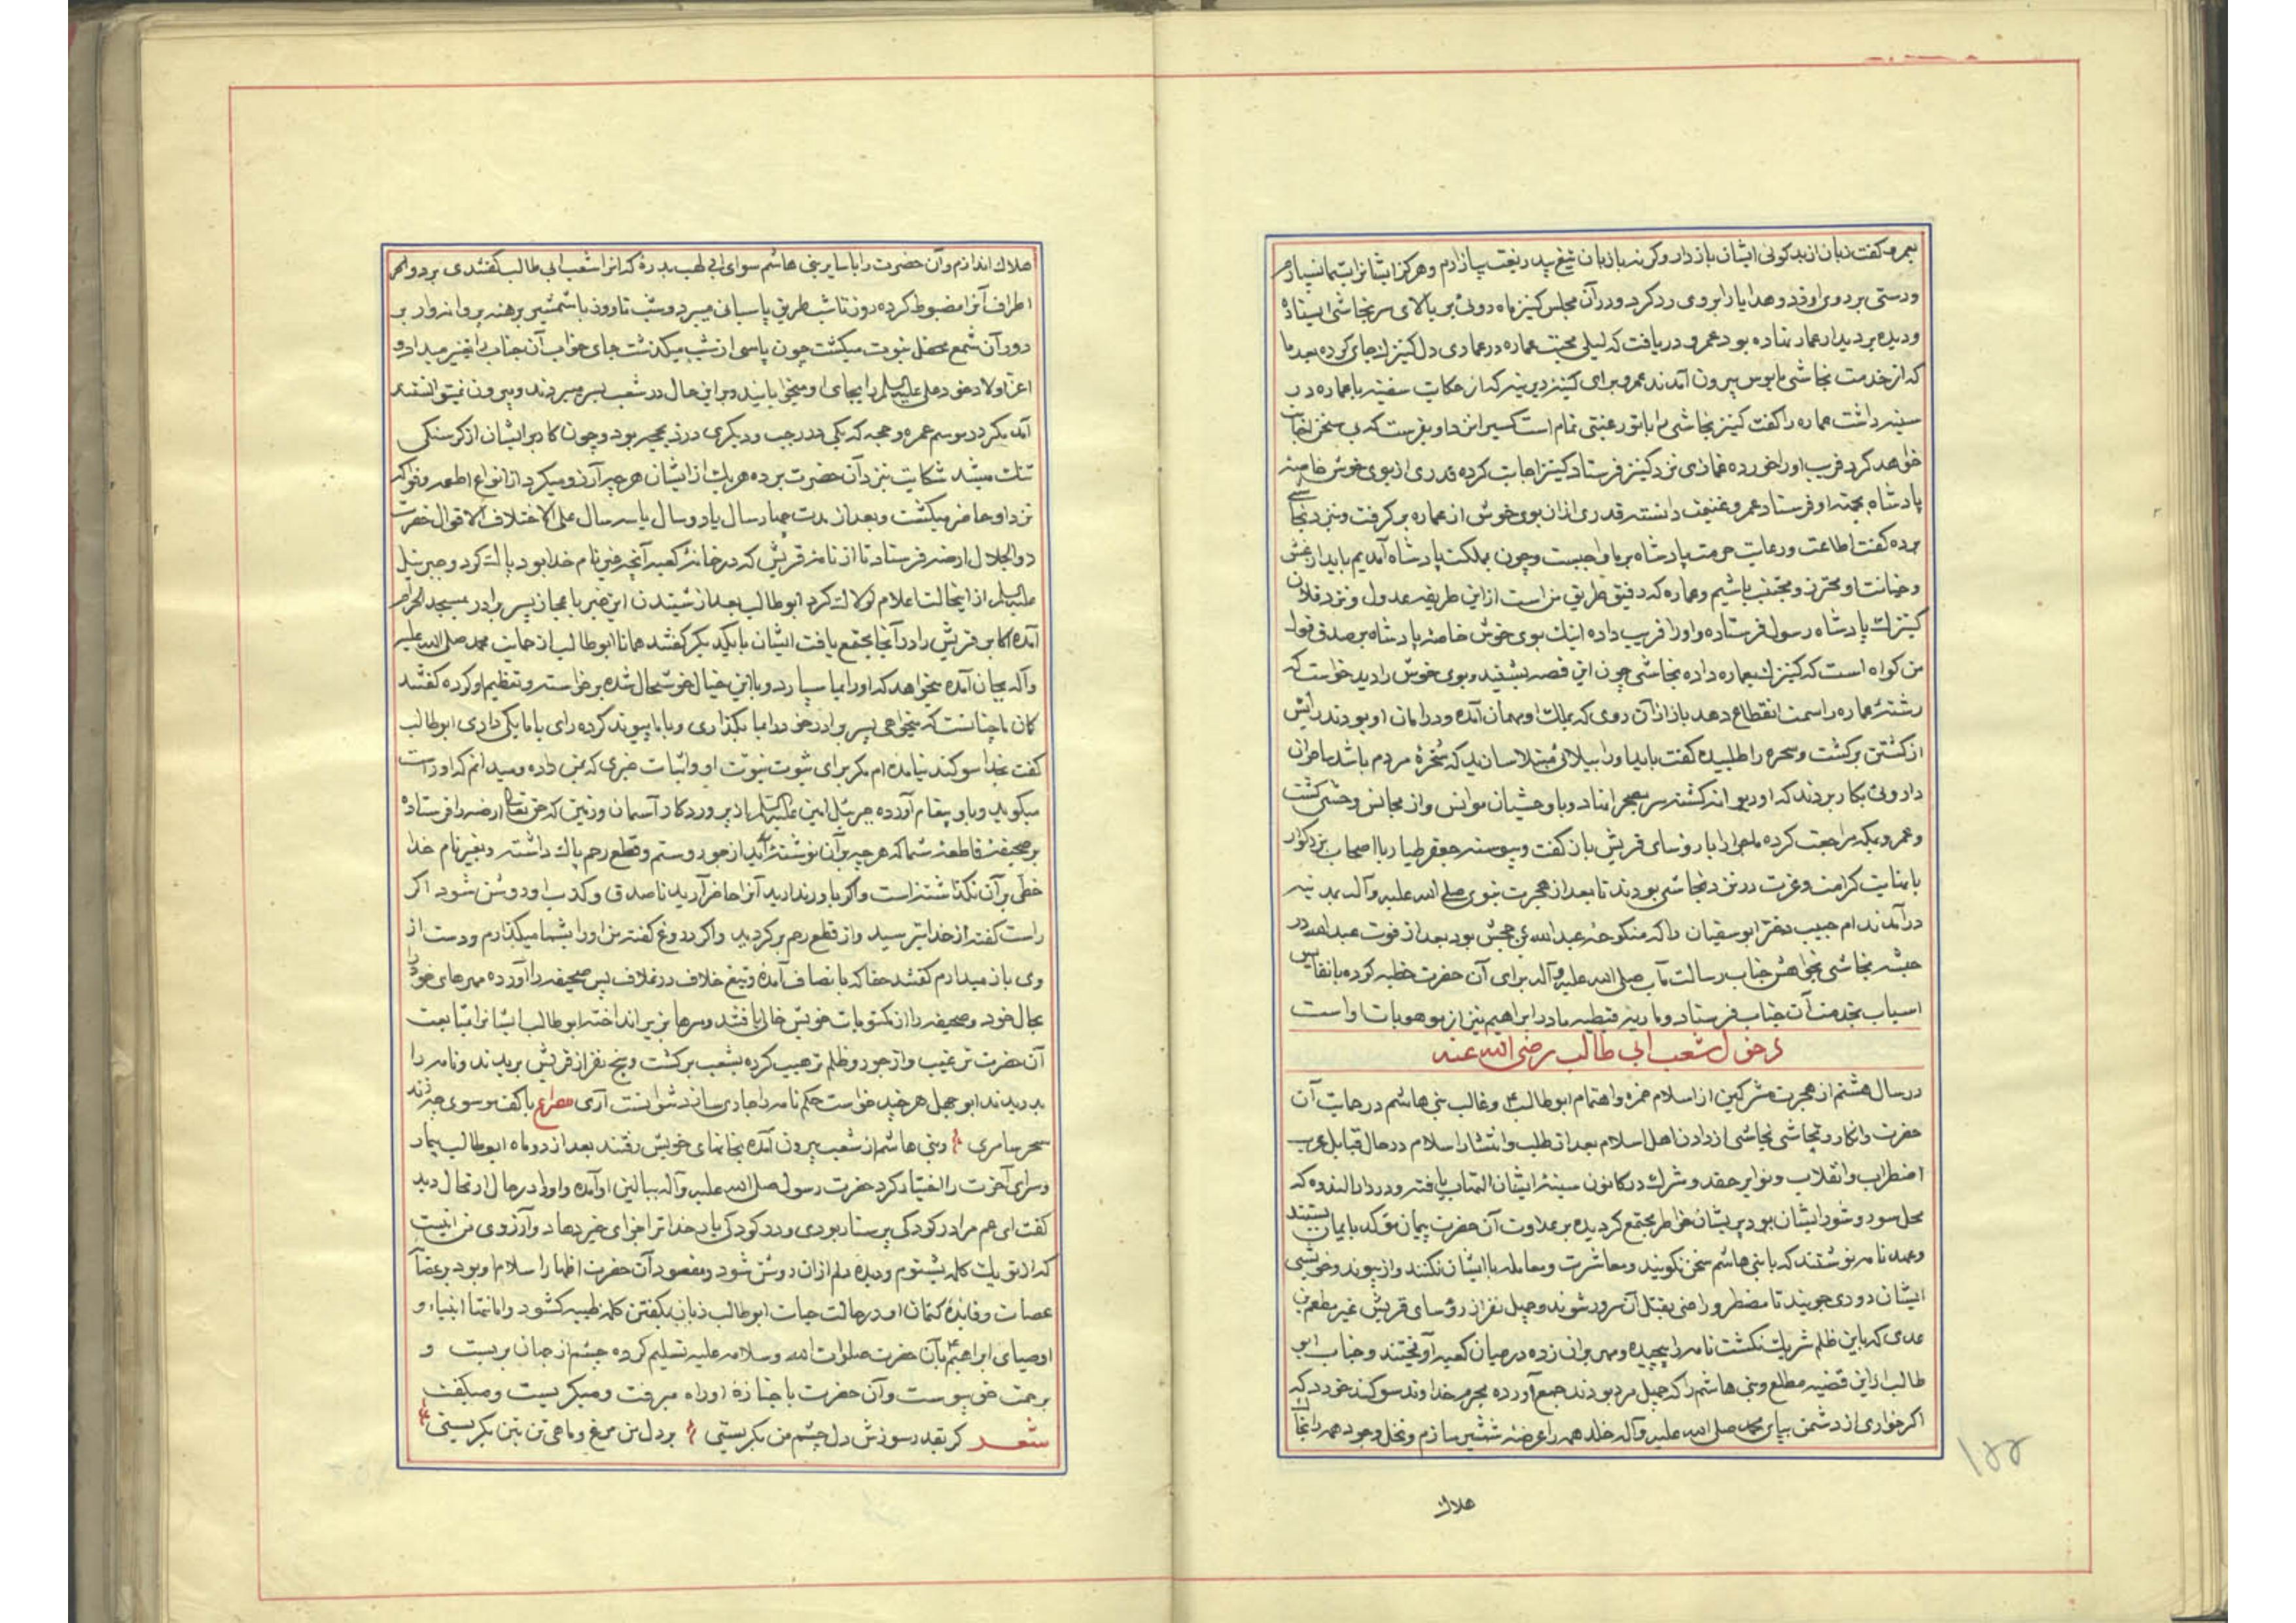 بعمرو گفت زبان از بدگوئی ایشان باز دار وگرنه بازبان تیغ بیدریغت بیازارم وهرگز ایشانرا بشما نسپارم
ودستی بر روی او زد وهدایا را بروی رد کرد ودر آن مجلس کنیز ماه روئی بر بالای سر نجاشی ایستاده
ودیده بر دیدار عماره نهاده بود عمرو دریافت که لیلی محبت عماره در عماری دل کنیزك جای کرده بعد ما
که از خدمت نجاشی مایوس بیرون آمدند عمرو برای کینه دیرینه که از حکایت سفینه با عماره در
سینه داشت عماره را گفت کنیز نجاشی را باتو رغبتی تمام است کسی نزد او بفرست که بی سخن اجابت
خواهد کرد فریب اورا خورده غمازی نزد کنیز فرستاد کنیز اجابت کرده قدری از بوی خوش خاصه
پادشاه بجهته او فرستاد عمرو غنیمت دانسته قدری ازان بوی خوش از عماره بر گرفت ونزد نجاشی
برده گفت اطاعت ورعایت حرمت پادشاه برما واجبست وچون بمملکت پادشاه آمدیم باید از غش
وخیانت او محترز ومجتنب باشیم وعماره که رفیق طریق من است ازین طریقه عدول ونزد فلان
کنیزك پادشاه رسول فرستاده واورا فریب داده اینك بوی خوش خاصه پادشاه بر صدق قول
من گواه است که کنیزك بعماره داده نجاشی چون این قصه بشنید وبوی خوش را دید خواست که
رشته عماره را سمت انقطاع دهد باز ازآن روی که بملك او مهمان آمده ودر امان او بودند رایش
از کشتن برگشت وسحره را طلبیده گفت باید اورا ببلائی مبتلا سازید که سخره مردم باشد ساحران
داروئی بکار بردند که او دیوانه گشته سر بصحرا نهاد وبا وحشیان موانس واز مجانس وحشی گشت
وعمرو بمکه مراجعت کرده ماجرا را با رؤسای قریش بازگفت وپیوسته جعفر طیار با اصحاب بزرگوار
بانهایت کرامت وعزت در نزد نجاشی بودند تا بعد از هجرت نبوی صلی الله علیه وآله بمدینه
درآمدند ام حبیب دختر ابوسفیان را که منکوحه عبدالله بن جحش بود بعد از فوت عبدالله در
حبشه نجاشی بخواهش جناب رسالت مآب صلی الله علیه وآله برای آن حضرت خطبه کرده با نفایس
اسباب بخدمت آن جناب فرستاد وماریه قبطیه مادر ابراهیم نیز از موهوبات اواست
دخول شعب ابی طالب رضی الله عنه
در سال هشتم از هجرت مشرکین از اسلام حمزه واهتمام ابوطالب وغالب بنی هاشم در حمایت آن
حضرت وانکار ونجاشی نجاشی از دادن اهل اسلام بعد از طلب وانتشار اسلام در حال قبایل عرب
اضطراب وانقلاب ونوایر حقد وشرك در کانون سینه ایشان التهاب یافته ودر دار الندوه که
محل سود وشور ایشان بود پریشان خواطر مجتمع گردیده بر عداوت آن حضرت پیمان مؤکد بایمان بستند
وعهد نامه نوشتند که با بنی هاشم سخن نگویند ومعاشرت ومعامله با ایشان نکنند واز پیوند وخویشی
ایشان دوری جویند تا مضطر وراضی بقتل آن سرور شوند وچهل نفر از رؤسای قریش غیر مطعم بن
عدی که باین ظلم شریك نگشت نامه را پیچیده ومهر بران زده در میان کعبه آویختند وجناب ابو
طالب ازین قضیه مطلع وبنی هاشم را که چهل مرد بودند جمع آورده بحرم خداوند سوگند خورد که
اگر خواری از دشمن بپای محمد صلی الله علیه وآله خلد همه را عرضه شمشیر سازم ونخل وجود همه را بخاك
هلاك
۱۵۵
هلاك اندازم وآن حضرت را با سایر بنی هاشم سوای ابی لهب بدره که انرا شعب ابی طالب گفتندی برد و
اطراف آنرا مضبوط کرده روز تا شب طریق پاسبانی میبرد وشب تا روز با شمشیر برهنه پروانه وار بر
دور آن شمع محفل نبوت میگشت چون پاسی از شب میگذشت جای خواب آن جناب را تغییر میداد و
اعز اولاد خود علی علیه السلام را بجای او میخوابانید وبر این حال در شعب بسر میبردند وبیرون نمیتوانستند
آمد مگر در موسم عمره وحجه که یکی در رجب ودیگری در ذیحجه بود وچون کار بر ایشان از گرسنگی
تنك میشد شکایت بنزد آن حضرت برده هریك از ایشان هرچه آرزو میکرد از انواع اطعمه وفواکه
نزد او حاضر میگشت وبعد از مدت چهار سال یا دو سال یا سه سال علی الاختلاف الاقوال حضرت
ذوالجلال ارضه فرستاد تا از نامه قریش که در خانه کعبه آنچه غیر نام خدا بود پاك کرد وجبرئیل
علیه السلام ازاینحالت اعلام کرد ابوطالب بعد از شنیدن این خبر با عجاز پسر برادر بمسجد الحرام
آمده اکابر قریش را در آنجا مجتمع یافت ایشان بایکدیگر گفتند همانا ابوطالب از حمایت محمد صلی الله علیه
وآله بجان آمده میخواهد که اورا بما سپارد وباین خیال خوشحال شده برخواسته وتعظیم او کرده گفتند
گمان ما چنانست که میخواهی پسر برادر خود را بما بگذاری وباما پیوند کرده رای باما یکی داری ابوطالب
گفت بخدا سوگند نیامده ام مگر برای ثبوت نبوت او واثبات خبری که بمن داده ومیدانم که او راست
میگوید وباو پیغام آورده جبرئیل امین علیه السلام از پروردگار آسمان وزمین که حق تعالی ارضه را فرستاده
بر صحیفه قاطعه شما که هرچه بر آن نوشته اید از جور وستم وقطع رحم پاك داشته وبغیر نام خدا
خطی بر آن نگذاشته است واگر باور ندارید آنرا حاضر آرید تا صدق وکذب او روشن شود اگر
راست گفته از خدا بترسید واز قطع رحم برگردید واگر دروغ گفته من اورا بشما میگذارم ودست از
وی باز میدارم گفتند حقا که بانصاف آمده وتیغ خلاف در غلاف پس صحیفه را آورده مهرهای خود را
بحال خود وصحیفه را از مکتوبات خویش خالی یافتند وسرها بزیر انداخته ابوطالب ایشانرا بمتابعت
آن حضرت ترغیب واز جور وظلم ترهیب کرده بشعب برگشت وپنج نفر از قریش بریدند ونامه را
بدریدند ابوجهل هرچند خواست حکم نامه را جاری سازد نتوانست آری مصراع باکف موسوی چه زند
سحر سامری وبنی هاشم از شعب بیرون آمده بخانهای خویش رفتند بعد از دو ماه ابوطالب بیمار
وسرای آخرت را اختیار کرد حضرت رسول صلی الله علیه وآله ببالین او آمده واورا در حال ارتحال دید
گفت ای عم مرا در کودکی پرستار بودی ودر کودکی یار خدا ترا جزای خیر دهاد وآرزوی من اینست
که از تو یك کلمه بشنوم ودیده دلم ازان روشن شود ومقصود آن حضرت اظهار اسلام او بود بر
عصات وفایده کتمان او در حالت حیات ابوطالب زبان بگفتن کلمه طیبه گشود وامانتها انبیاء و
اوصیای ابراهیم بآن حضرت صلوات الله وسلامه علیه تسلیم کرده چشم از جهان بربست و
برحمت حق پیوست وآن حضرت با جنازه اوراه میرفت ومیگریست ومیگفت
شعر گر بقدر سوزش دل چشم من بگریستی بر دل من مرغ وماهی تن بتن بگریستی